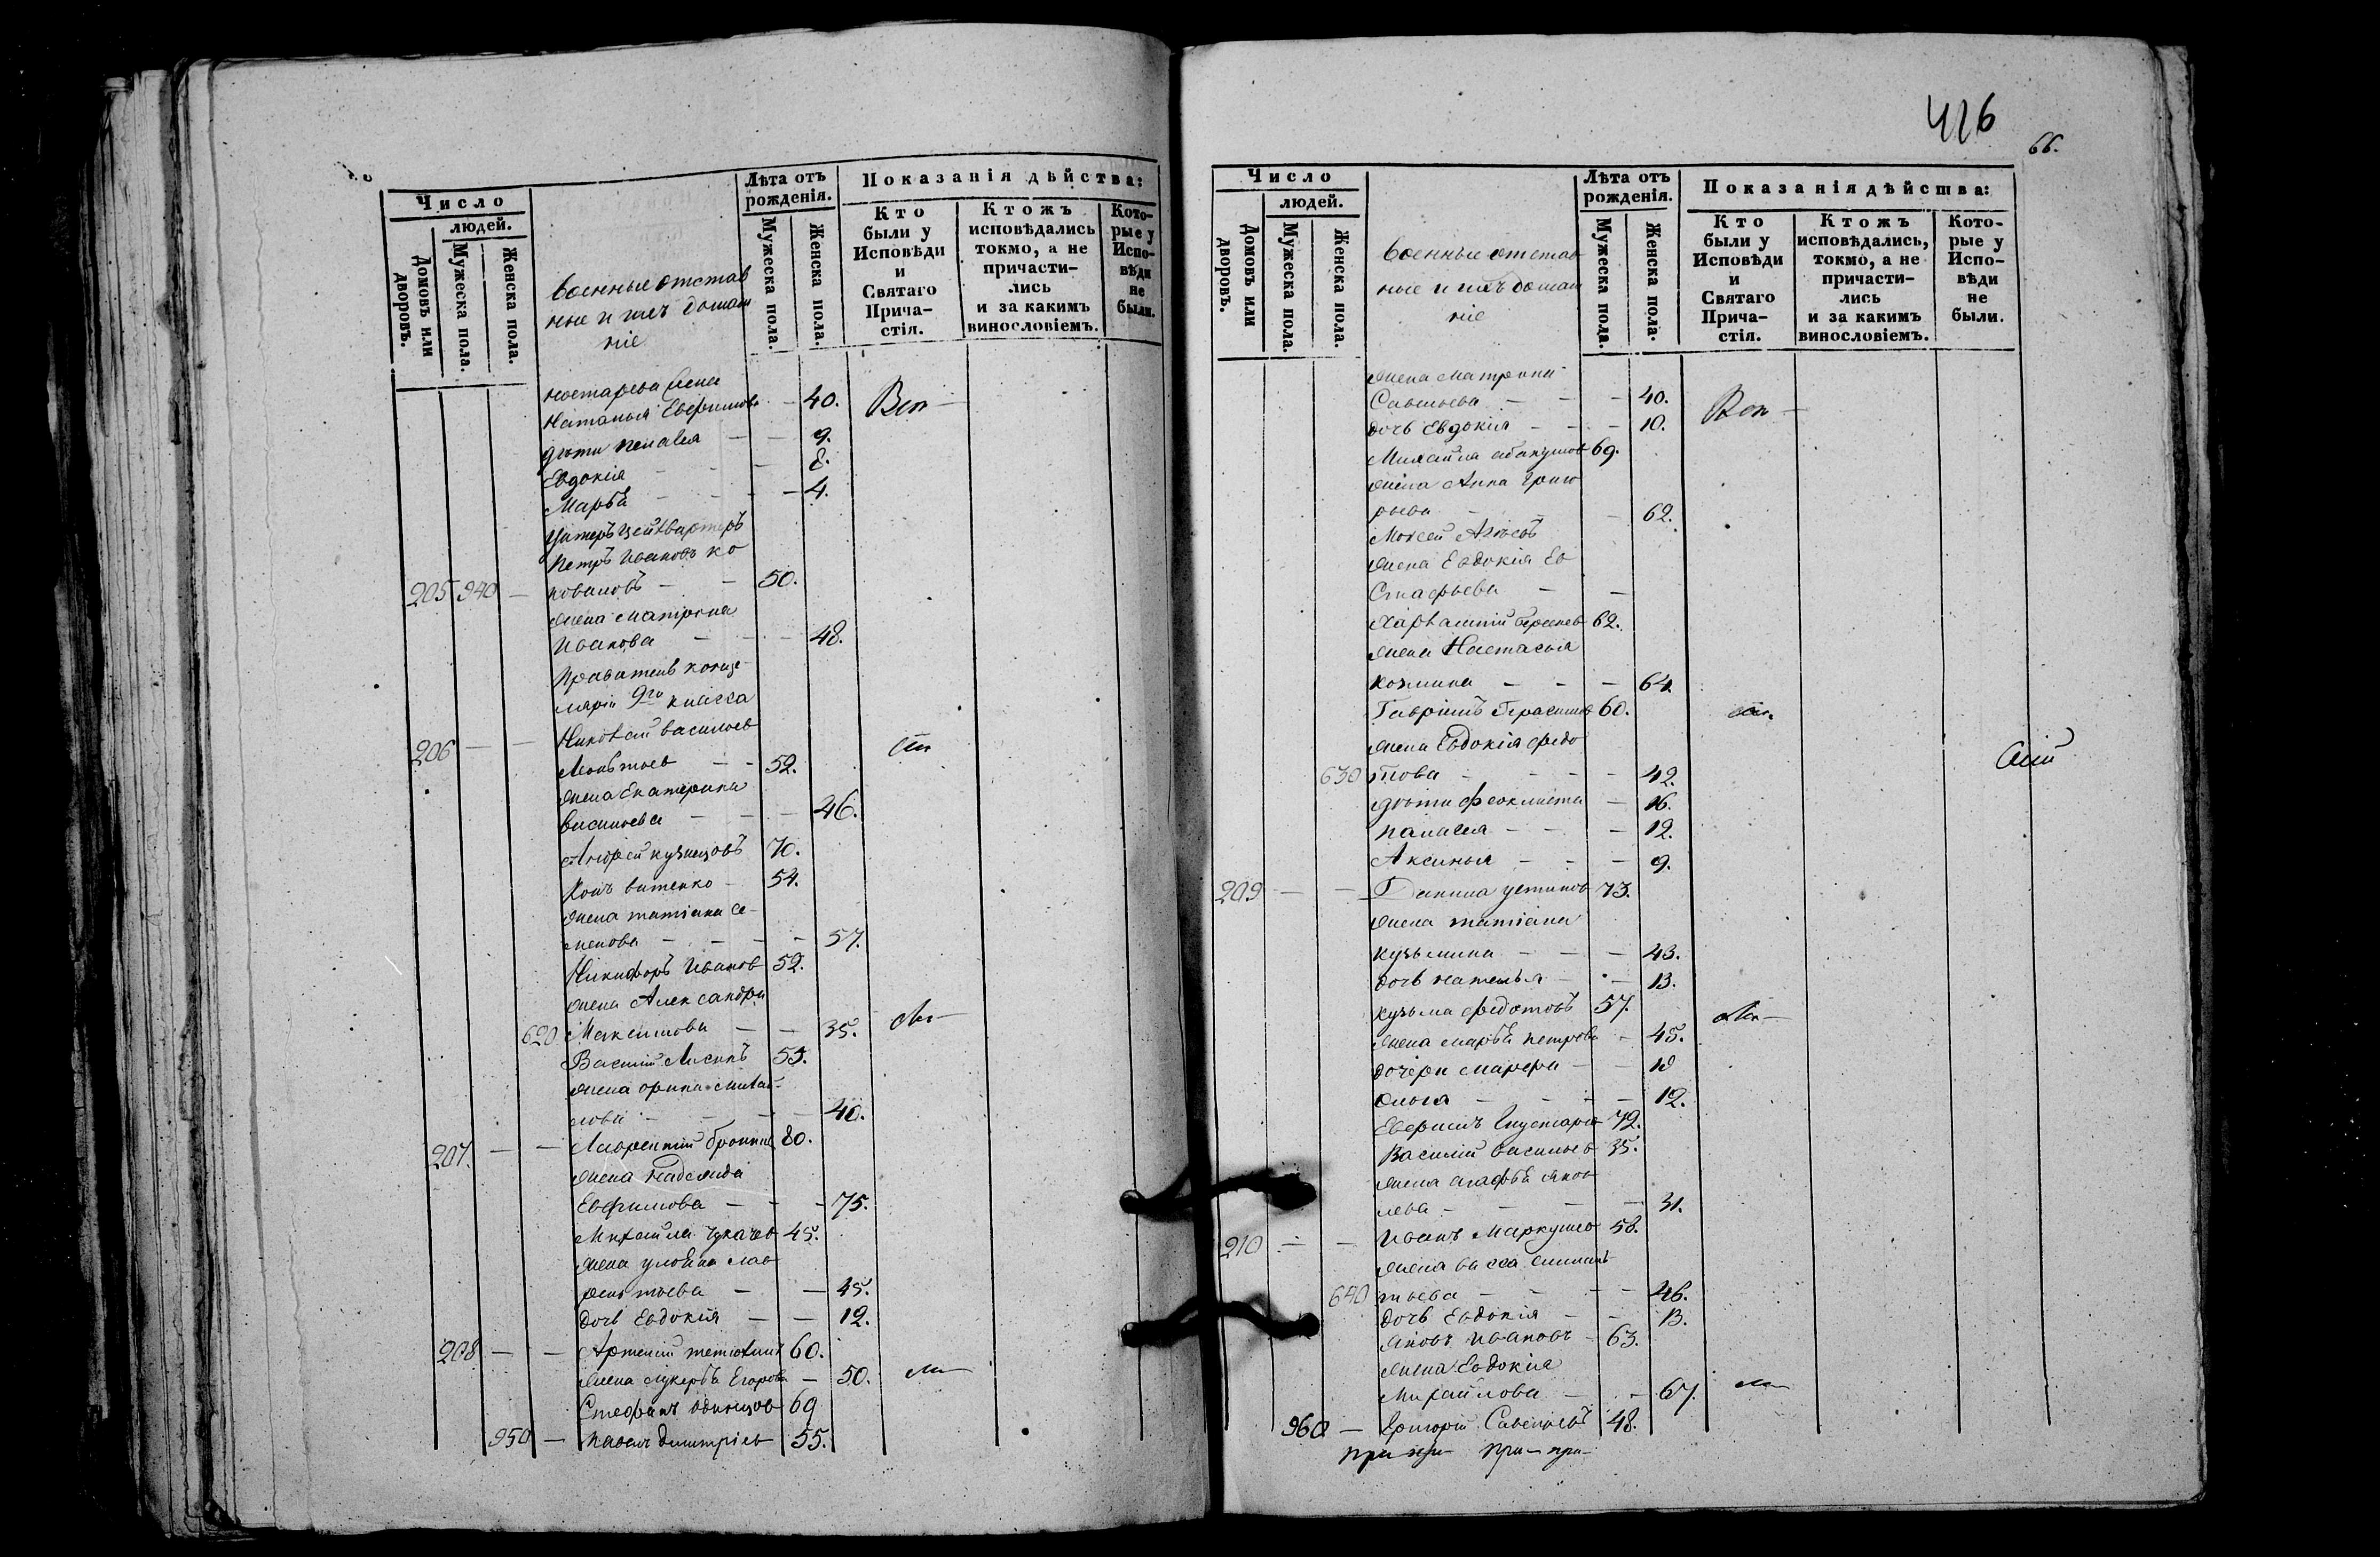 Число
людей.
Домовъ или дворовъ.
Мужеска пола.
Женска пола.
Военные отстав
ные и ихъ домаш
ніе
Лѣта отъ рожденія.
Мужеска пола.
Женска пола.
Показанія дѣйства:
Кто были у Исповѣди и Святаго Прича-стія.
Ктожъ исповѣдались токмо, а не причасти-лись и за какимъ винословіемъ.
Кото-рые у Испо-вѣди не были.
жена
Наталья Евфимова — 40.
дѣти Пелагея — — 9.
Евдокія — — — 8.
Марѳа — — — 4.
Петръ Ивановъ Ко
205 940 — новаловъ — — 50.
жена Матрона
Иванова — — — 48.
Правитель канце-
ляріи 9го класса
Николай Васильев
206 — — Леонтьев — — 52.
жена Екатерина
Васильева — — — 46.
Андрей Кузнецовъ 70.
Витенко — 54.
жена Татіана Се-
менова — — — — 57.
Никифоръ Иванов 52.
жена Александра
620 Максимова — — 35.
Василій Лисинъ 55.
жена Орина Михай-
лова — — — — 40.
207. — — Лаврентій 80.
жена Надежда
Евфимова — — — 75.
Михайла Чукачев 45.
жена Улобина Лав
рентьева — — 45.
дочь Евдокія — — 12.
208 — — Артемій 60.
жена Лукерья Егорова — 50.
Стефанъ Одинцов 69
950 — Павелъ Дмитріев 55.
426
66.
Число
людей.
Домовъ или дворовъ.
Мужеска пола.
Женска пола.
Военные отстав
ные и ихъ домаш
ніе
Лѣта отъ рожденія.
Мужеска пола.
Женска пола.
Показанія дѣйства:
Кто были у Исповѣди и Святаго Прича-стія.
Ктожъ исповѣдались, токмо, а не причасти-лись и за какимъ винословіемъ.
Кото-рые у Испо-вѣди не были.
жена Матрона
Савельева — — — 40.
дочь Евдокія — — — 10.
Михайла Абакумов 69.
жена Анна Григо
рьева — — 62.
Моисей
жена Евдокія Ев
стафьева — —
62.
жена Настасья
Козмина — — — 64
Гаврінлъ Герасимов 60.
жена Евдокія Федо
630 това — — — — 42.
дѣти Феоклиста — 16.
Палагея — — — 12.
Аксинья — — — 9.
209 — — Данила Устинов 73.
жена Татіана
Кузьмина — — — 43.
дочь Наталья — — 13.
Кузьма Федотовъ 57.
жена Марѳа Петрова — 45.
дочери Марфа — —
Ольга — — — — 12.
Евфимъ 72.
Василій Васильев 35.
жена Агафья Яков
лева — — — — 31.
210 — — Иванъ Маркушев 58.
жена Васса
640 тьева — — — — 46.
дочь Евдокія — — 13.
Яковъ Ивановъ — 63.
жена Евдокія
Михайлова — — 67.
960 — Григорій Савельевъ 48.